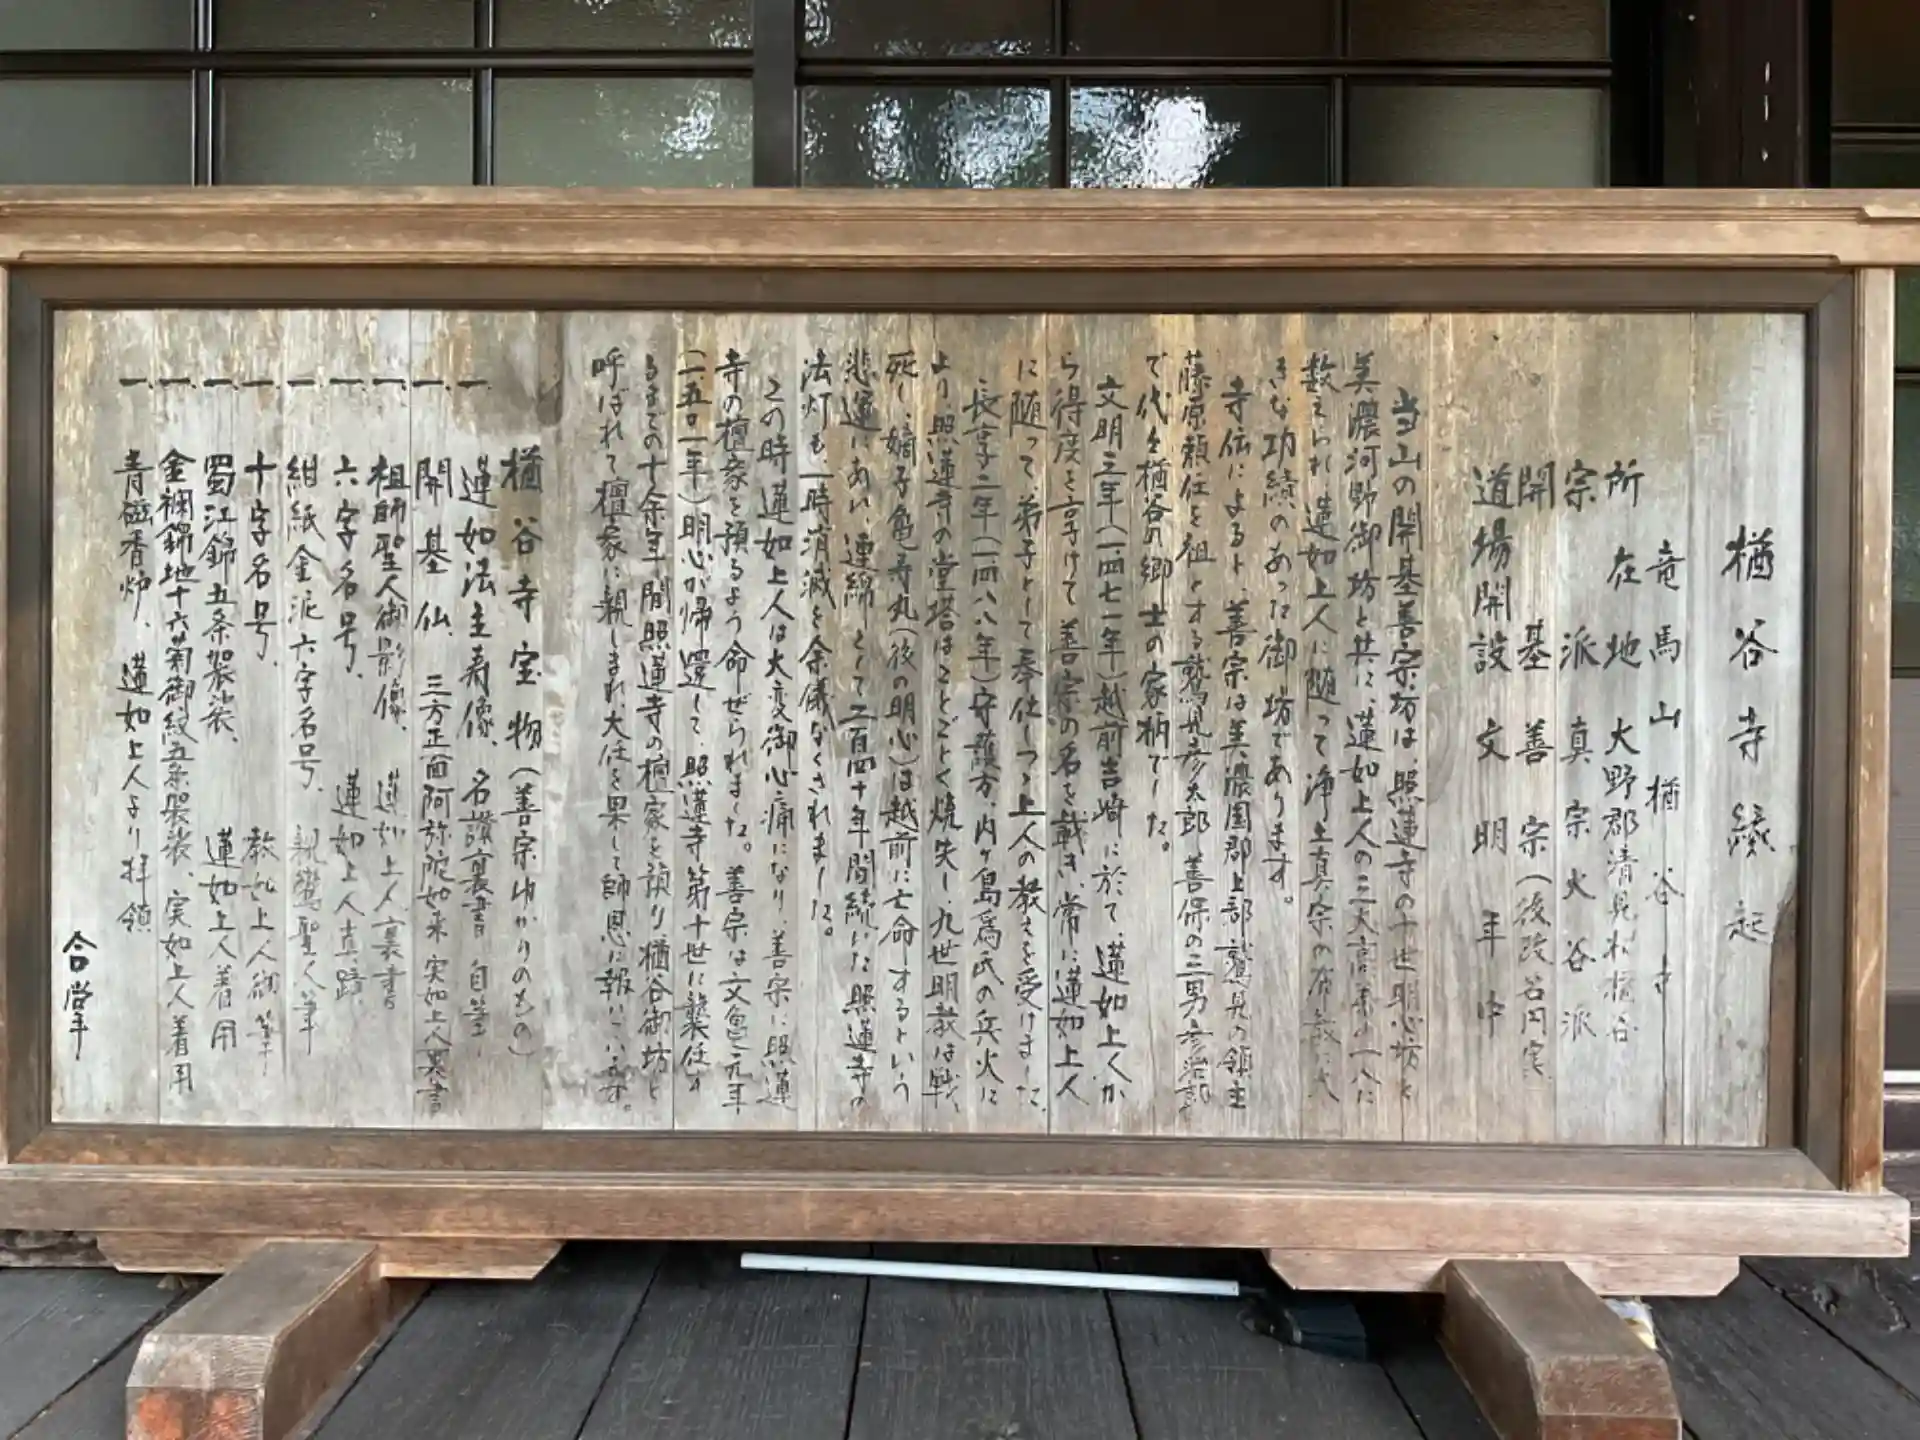 楢谷寺縁起
竜馬山楢谷寺
所在地 大野郡清見村楢谷
宗派 真宗大谷派
開基 善宗(後改名円実
道場開設 文明年中
当山の開基善宗坊は、照蓮寺の十世明心坊と
美濃河野御坊と共に、蓮如上人の三大高弟の一人に
数えられ、蓮如上人に随って浄土真宗の布教に大
きな功績のあった御坊であります。
寺伝によると、善宗は美濃国郡上郡鷲見の領主
藤原頼任を祖とする鷲見彦太郎善保の三男彦治郎
で代々楢谷の郷士の家柄でした。
文明三年(一四七一年)越前吉崎に於て、蓮如上人か
ら得度を享けて善宗の名を戴き、常に蓮如上人
に随って、弟子として奉仕しつゝ上人の教えを受けました、
長享二年(一四八八年)守護方、内ヶ島為氏の兵火に
より、照蓮寺の堂塔はことごとく焼失し、九世明教は戦
死し、嫡子亀寿丸(後の明心)は越前に亡命するという
悲運にあい、連綿として二百四十年間続いた照蓮寺の
法灯も、一時消滅を余儀なくされました。
この時、蓮如上人は大変御心痛になり、善宗に照蓮
寺の檀家を預るよう命ぜられました。善宗は文亀元年
(一五〇一年)明心が帰還して、照蓮寺第十世に襲任す
るまでの十余年間照蓮寺の檀家を預り、楢谷御坊と
呼ばれて檀家に親しまれ、大任を果して師恩に報いています。
楢谷寺宝物(善宗ゆかりのもの)
一、蓮如法主寿像、名讃裏書 自筆、
一、開基仏、三方正面阿弥陀如来 実如上人裏書
一、祖師聖人御影像、蓮如上人裏書
一、六字名号、蓮如上人真蹟
一、紺紙金泥六字名号、親鸞聖人筆
一、十字名号、教如上人御筆
一、蜀江錦五条袈裟、蓮如上人着用
一、金襴錦地十六菊御紋五条袈裟、実如上人着用
一、青磁香炉、蓮如上人より拝領
合掌